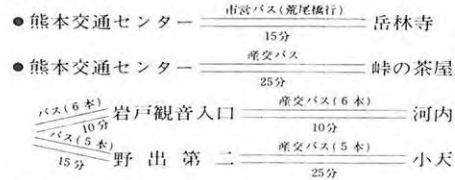 ●熊本交通センター 市営バス(荒尾橋行) 15分 岳林寺
●熊本交通センター 産交バス 25分 峠の茶屋
バス(6本) 10分 岩戸観音入口 産交バス(6本) 10分 河内
バス(5本) 15分 野出第二 産交バス(5本) 25分 小天